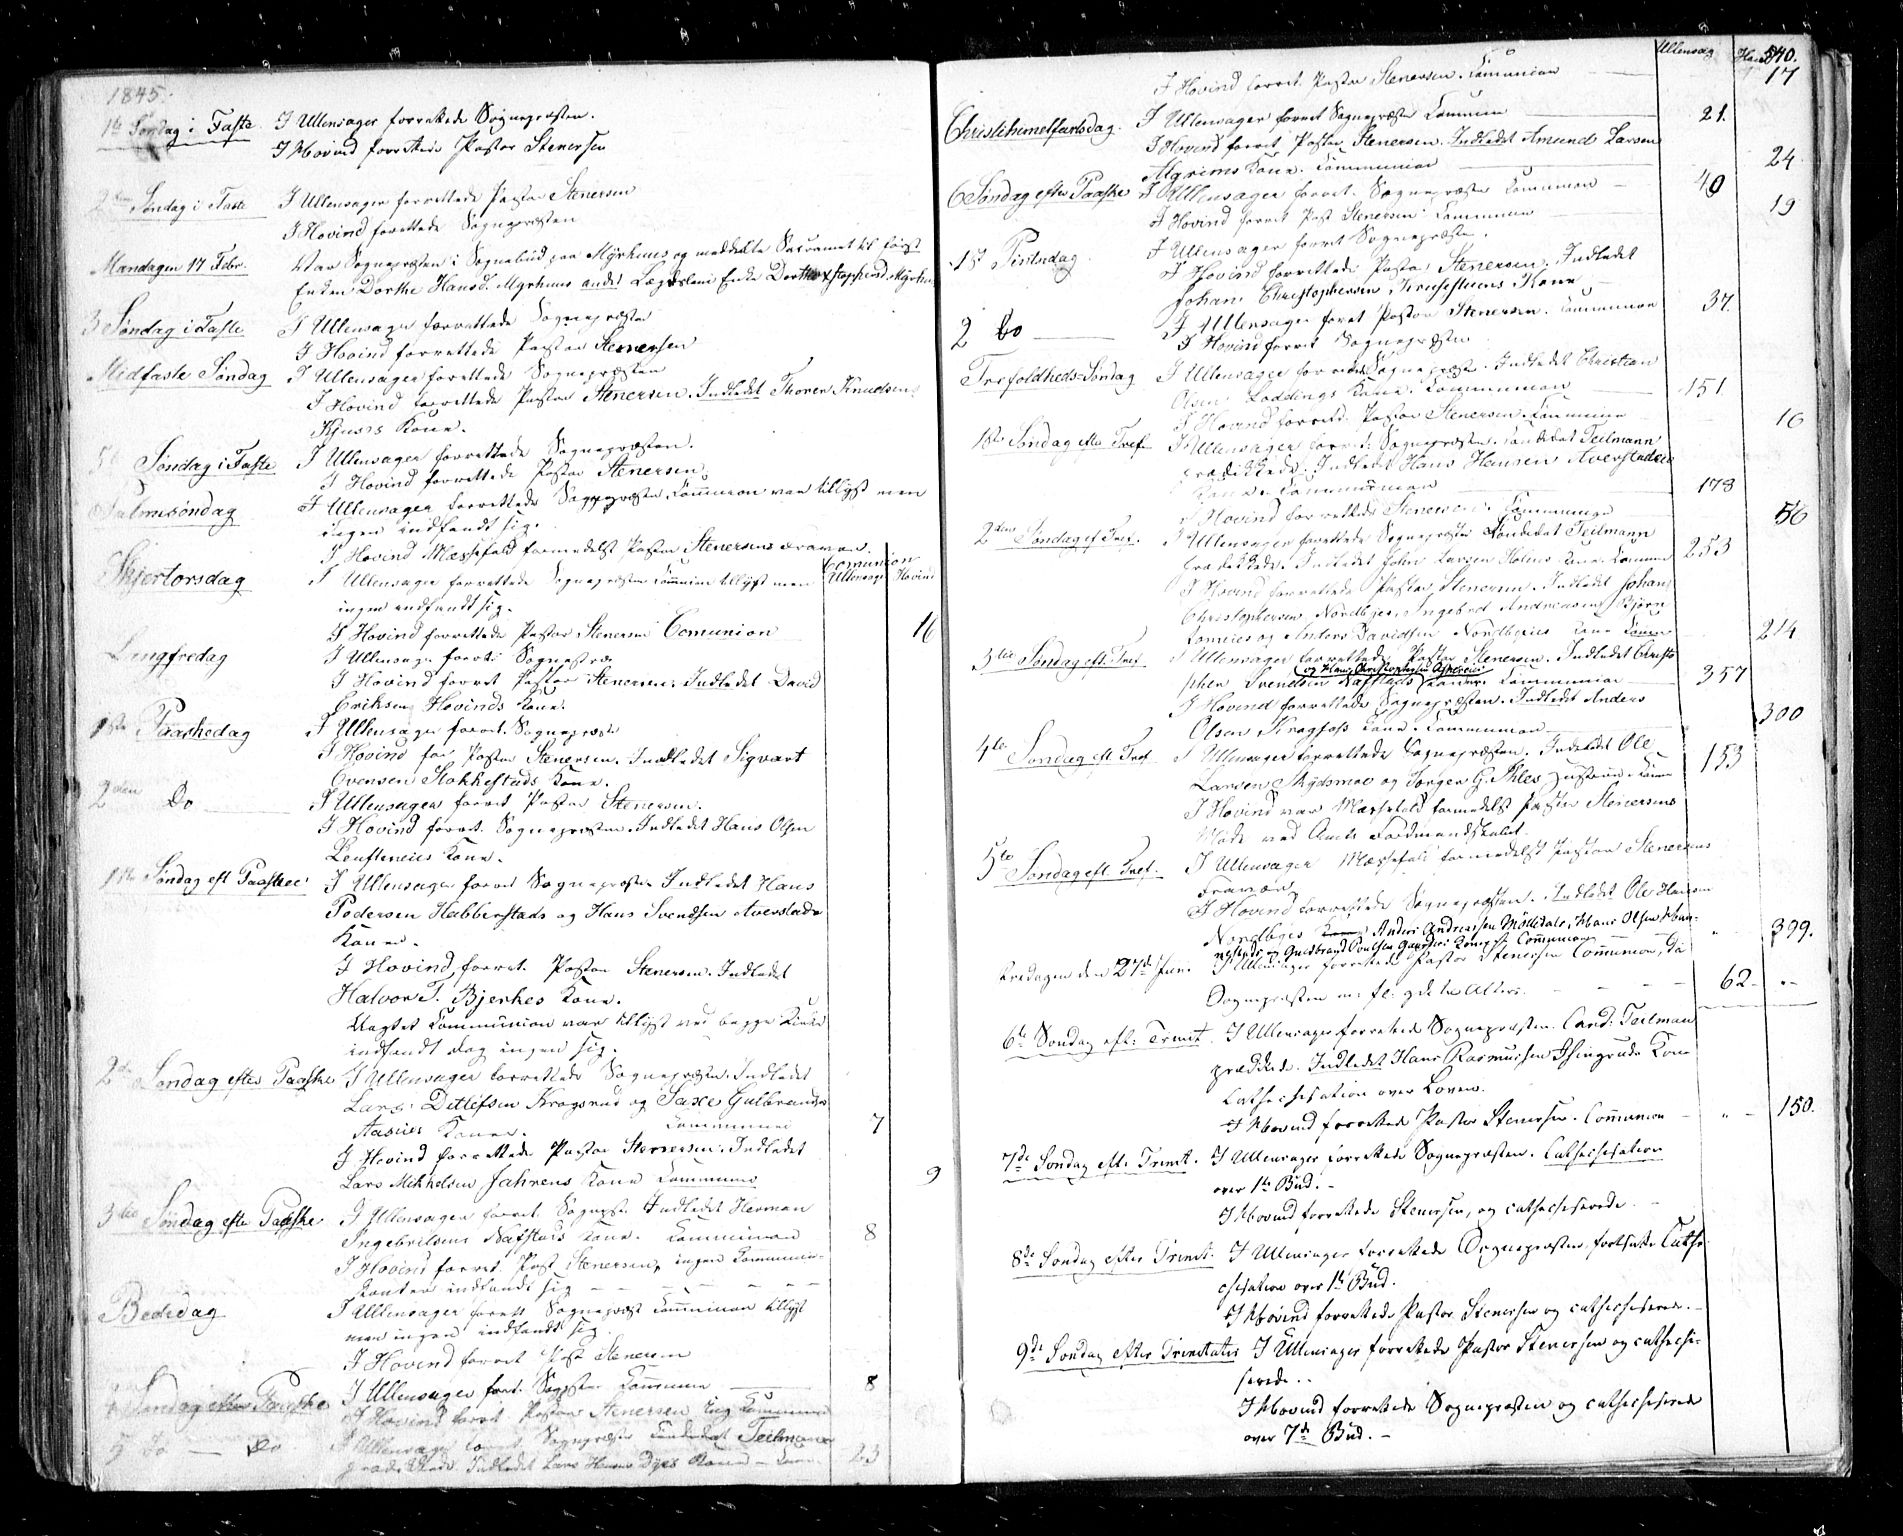 1845.
1ste Søndag i Faste. I Ullensager forrettede Sognepræsten.
I Hovind forrettede Pastor Stenersen
2den Søndag i Faste I Ullensager forrettede Pastor Stenersen
I Hovind forrettede Sognepræsten
Mandagen 17 Febr. Var Sognepræsten i Sognebud paa Myrhuus og meddelte Sacramentet til
Enken Dorthe Hansd. Myrhuus Lægdslem Enke Dorthe Myrhuus
3 Søndag i Faste I Ullensager forrettede Sognepræsten
I Hovind forrettede Pastor Stenersen
Midfaste Søndag I Ullensager forrettede Sognepræsten
I Hovind forrettede Pastor Stenersen. Indledet Thorer Knudsens
Kjuss Kone.
5te Søndag i Faste I Ullensager forrettede Sognepræsten.
I Hovind forrettede Pastor Stenersen.
Palmesøndag I Ullensager forrettede Sognepræsten, Communion var tillyst men
ingen indfandt sig.
I Hovind Messefald formedelst Pastor Stenersens Fravær.
Comunion
Skjertorsdag I Ullensager forrettede Sognepræsten Communion tillyst men Ullensager Hovind
ingen indfandt sig.
I Hovind forrettede Pastor Stenersen Comunion 16
Langfredag I Ullensager forret. Sognepræsten
I Hovind forret Pastor Stenersen. Indledet David
Eriksen Hovinds Kone.
1ste Paaskedag I Ullensager forret. Sognepræsten
I Hovind for. Pastor Stenersen. Indledet Sigvart
Evensen Stokkestads Kone.
2den Do I Ullensager forret Pastor Stenersen.
I Hovind forret. Sognepræsten. Indledet Hans Olsen
Kone.
1ste Søndag eft Paaske I Ullensager forret Sognepræsten Indledet Hans
Pedersen Habberstads og Hans Svendsen Averstads
Koner.
I Hovind forret. Pastor Stenersen. Indledet
Halvor T. Bjerkes Kone.
Uagtet Communion var tillyst ved begge Kirker
indfandt dog ingen sig.
2den Søndag efter Paaske I Ullensager forrettede Sognepræsten. Indledet
Lars Ditlefsen Kragsrud og Saxe Gulbrandsen
Aasuis Koner. Communion 7
I Hovind forrettede Pastor Stenersen. Indledet
Lars Mikkelsen Jahrens Kone Communion 9
3die Søndag efter Paaske I Ullensager forret. Sognepr. Indledet Herman
Ingebrigtsen Nafstads Kone. Communion 8
I Hovind forret. Past Stenersen, ingen Communi-
kanter indfandt sig
Bededag I Ullensager forrett Sognepræst Communion tillyst
men ingen indfandt sig.
I Hovind forret Past Stenersen
Søndag efter Paaske I Ullensager forret. Sognepræsten Communion 8
I Hovind forret Pastor Stenersen Communion
5 Do Do I Ullensager forret Sognepræsten Candidat Teilmann
prædikede. Indledet Lars Hansen Kone 23
Ullensag. Hovind 540.
I Hovind forret. Pastor Stenersen. Communion 17
Christihimmelfartsdag. I Ullensager forret Sognepræsten Communion 21.
I Hovind forret Pastor Stenersen. Indledet Amund Larsen
Algrims Kone. Communion 24
6 Søndag efter Paaske I Ullensager forret. Sognepræsten Communion 40
I Hovind forret Past Stenersen Communion 19
1st Pintsdag I Ullensager forret Sognepræsten.
I Hovind forrettede Pastor Stenersen. Indledet
Johan Christophersen Kone
2 Do I Ullensager foret Pastor Stenersen. Communion 37.
I Hovind forret Sognepræsten
Trefoldheds-Søndag I Ullensager forrettede Sognepræsten. Indledet Christian
Olsen Loddings Kone. Communion 151
I Hovind forrettd. Pastor Stenersen. Communion 16
1ste Søndag efter Tref. I Ullensager forret. Sognepræsten. Candidat Teilmann
prædikkede. Indledet Hans Hansen Averstadeie
Kone. Communion 178
I Hovind forrettede Stenersen. Communion 56
2den Søndag ef Tref. I Ullensager forrettede Sognepræsten Candidat Teilmann
prædikkede. Indledet John Larsen Holms Kone. Communion 253
I Hovind forrettede Pastor Stenersen. Indledet Johan
Christophersen Nordbyes, Ingebret Andreasen Bjørn
og Anders Davidsen Nordbyeies Kone Commun 214
3die Søndag eft. Tref. I Ullensager forrettede Pastor Stenersen. Indledet Christo
og Hans Christophersen
phen Svendsen Nafstads Koner. Communion 357
I Hovind forrettede Sognepræsten. Indledet Anders
Olsen Kragfoss Kone. Communion 300
4de Søndag eft Tref. I Ullensager forrettede Sognepræsten. Indledet Ole
Larsen Skydsmoe og Jørgen G. Ihles Hustrue. Comm 153
I Hovind var Messefald formedelst Pastor Stenersens
Møde ved Amts Formandskabet.
5te Søndag eft. Tref. I Ullensager Messefald formedelst Pastor Stenersens
Fravær.
I Hovind forrettede Sognepræsten. Indledet Ole Hansen
Nordbyes Anders Andreassen Mølledals, Hans Olsen Han-
nestads og Guldbrand Poulsen Koner. Communion " 399.
Fredagen den 27de Juni. I Ullensager forrettede Pastor Stenersen Communion, da
Sognepræsten m: fl: gik til Alters. 62 "
6te Søndag eft: Trinit. I Ullensager forrettede Sognepræsten. Cand: Teilman
prædikede. Indledet Hans Rasmussen Kone
Cathechisation over Loven.
I Hovind forrettede Pastor Stenersen. Communion " 150.
7de Søndag eft. Trinit. I Ullensager forrettede Sognepræsten. Cathechisation
over 1ste Bud. -
I Hovind forrettede Stenersen, og cathechiserede. -
8de Søndag efter Trinit: I Ullensager forrettede Sognepræsten, fortsatte Cathe-
chisation over 1ste Bud.
I Hovind forrettede Pastor Stenersen og cathechiserede. -
9de Søndag efter Trinitatis I Ullensager forrettede Pastor Stenersen og cathechi-
serede. .
I Hovind forrettede Sognepræsten og cathechiserede
over 7de Bud. -